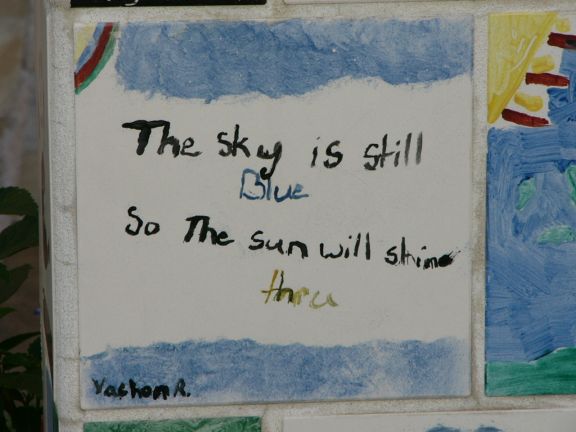 The sky is still
Blue
So The sun will shine
thru
Vachon R.